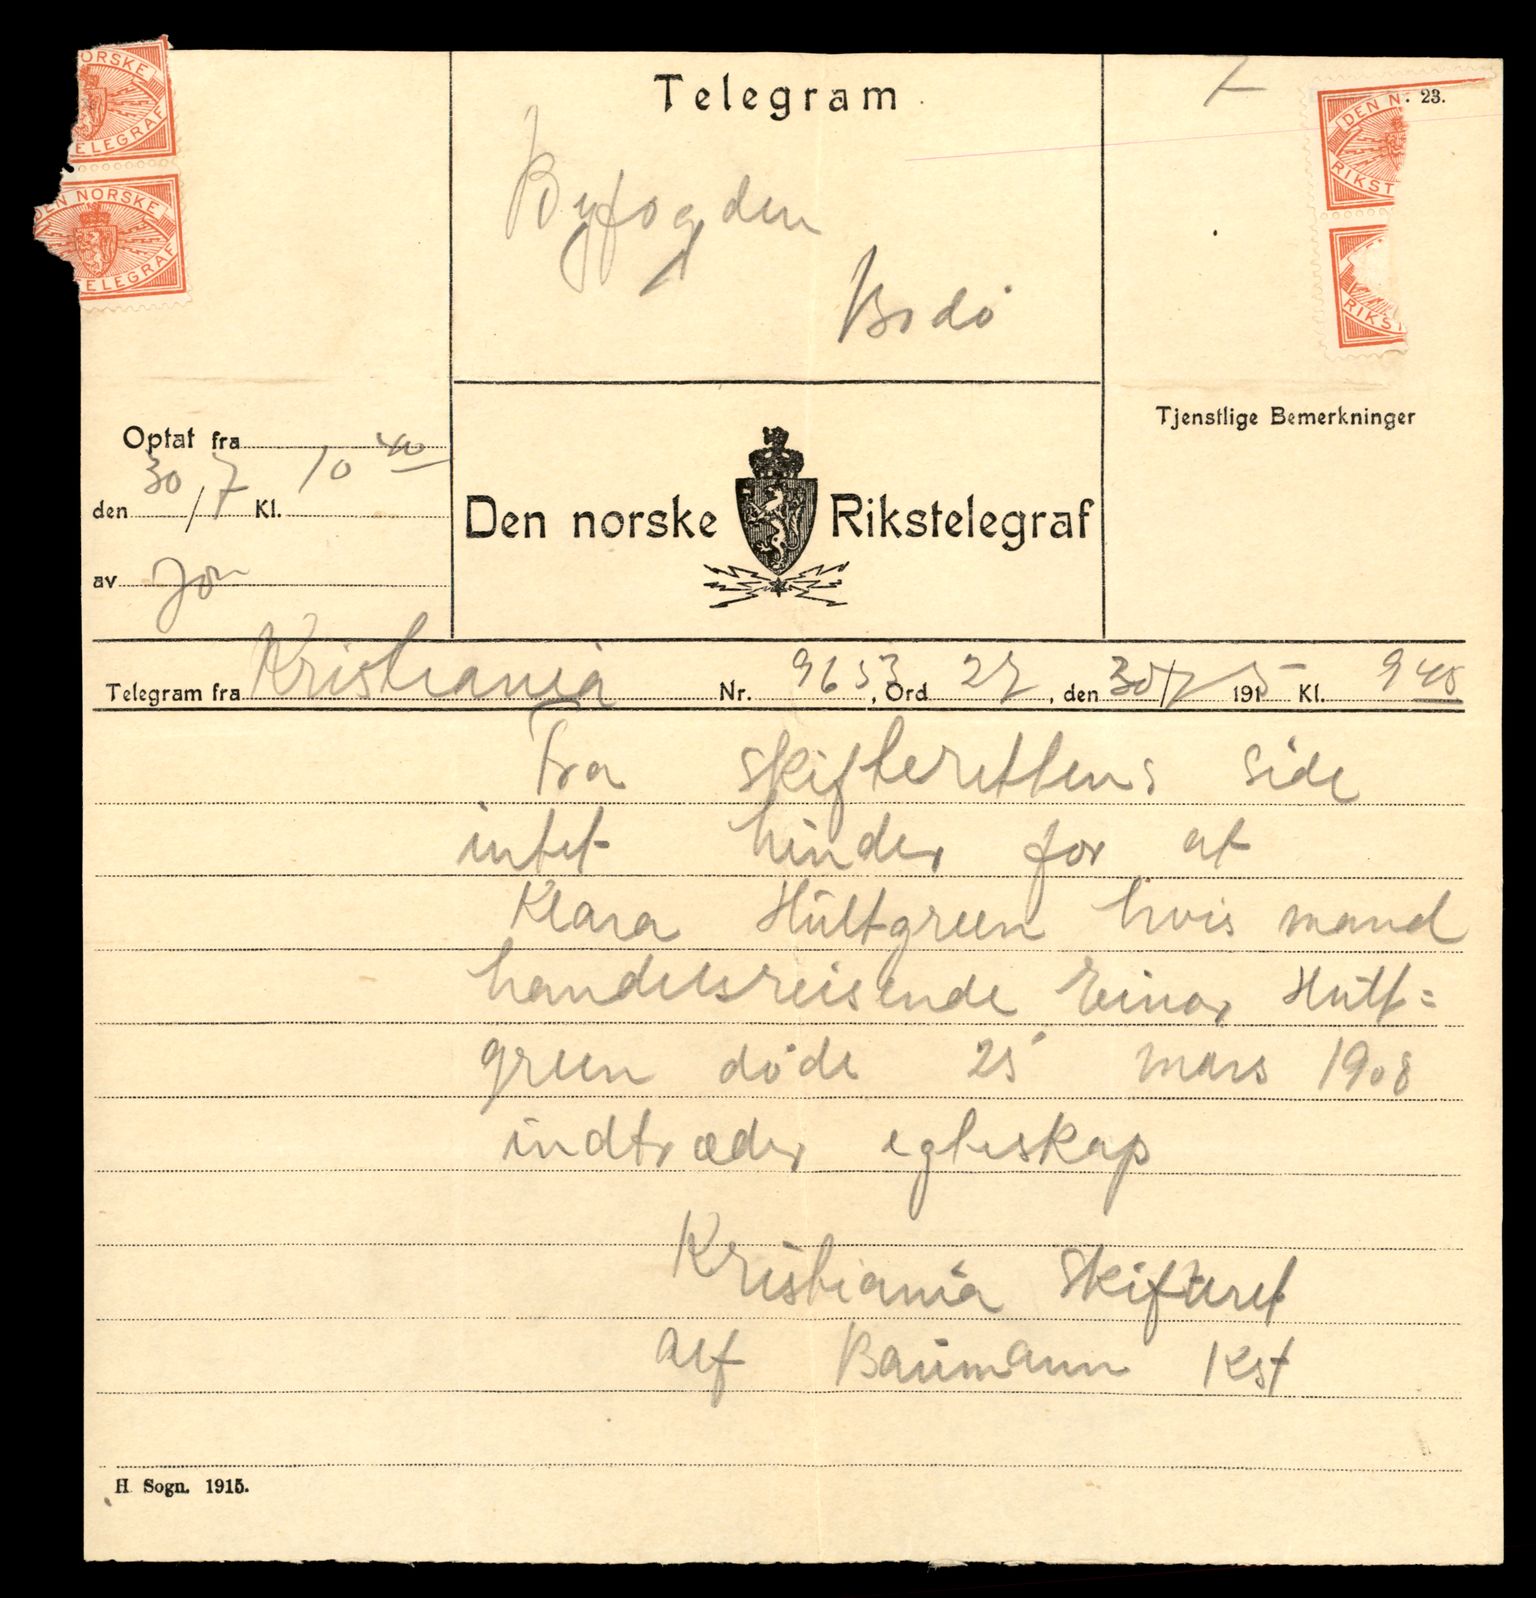 ORSKE
ELEGRAF
EN NORSKE
ELEGRAF
Telegram
Byfogden
Bodö
DEN N
23.
RIKST
RIKST
Tjenstlige Bemerkninger
Optat fra
den 30/7 Kl. 10 40
av
Den norske Rikstelegraf
Telegram fra Kristiania Nr. 9653, Ord 27, den 30/7 1915 Kl. 9 40
Fra skifterettens side
intet hinder for at
Klara Hültgreen hvis mand
handelsreisende Einar Hült=
green döde 25 mars 1908
indtræder egteskap
Kristiania Skifteret
Alf Baumann Kst
H. Sogn. 1915.